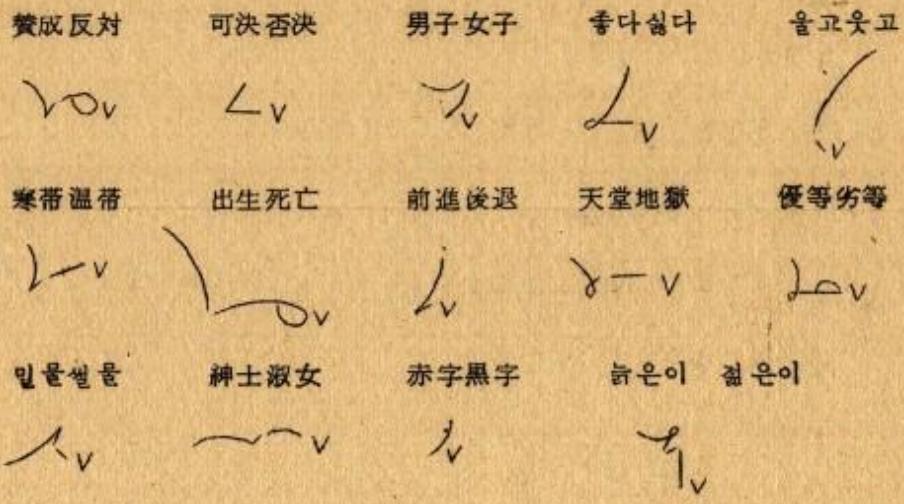 賛成反対 可決否決 男子女子 좋다싫다 울고웃고
寒帯温帯 出生死亡 前進後退 天堂地獄 優等劣等
밀물썰물 紳士淑女 赤字黒字 늙은이 젊은이